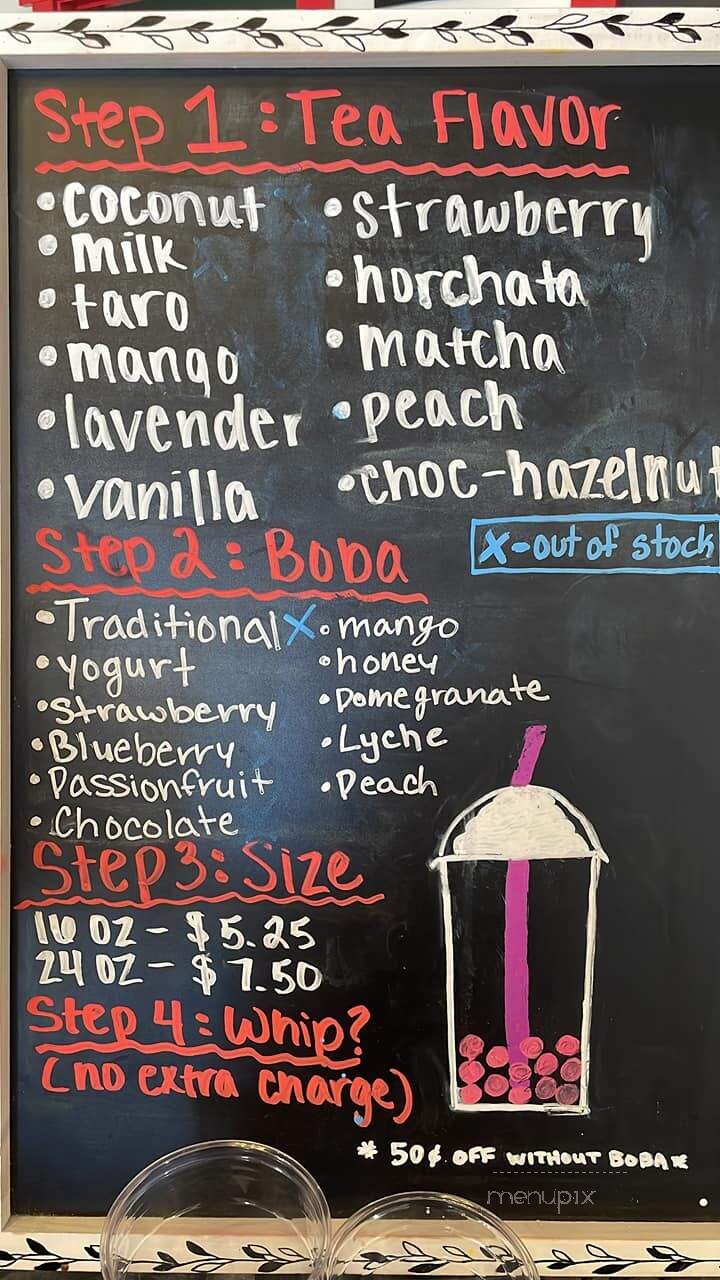 Step 1: Tea Flavor
• coconut
• milk
• taro
• mango
• lavender
• vanilla
• strawberry
• horchata
• matcha
• peach
• choc-hazelnut
X-out of stock
Step 2: Boba
• Traditional X
• yogurt
• Strawberry
• Blueberry
• Passionfruit
• Chocolate
• mango
• honey
• Pomegranate
• Lyche
• Peach
Step 3: Size
16 OZ - $5.25
24 OZ - $7.50
Step 4: Whip?
(no extra charge)
* 50¢ OFF WITHOUT BOBA *
menupix